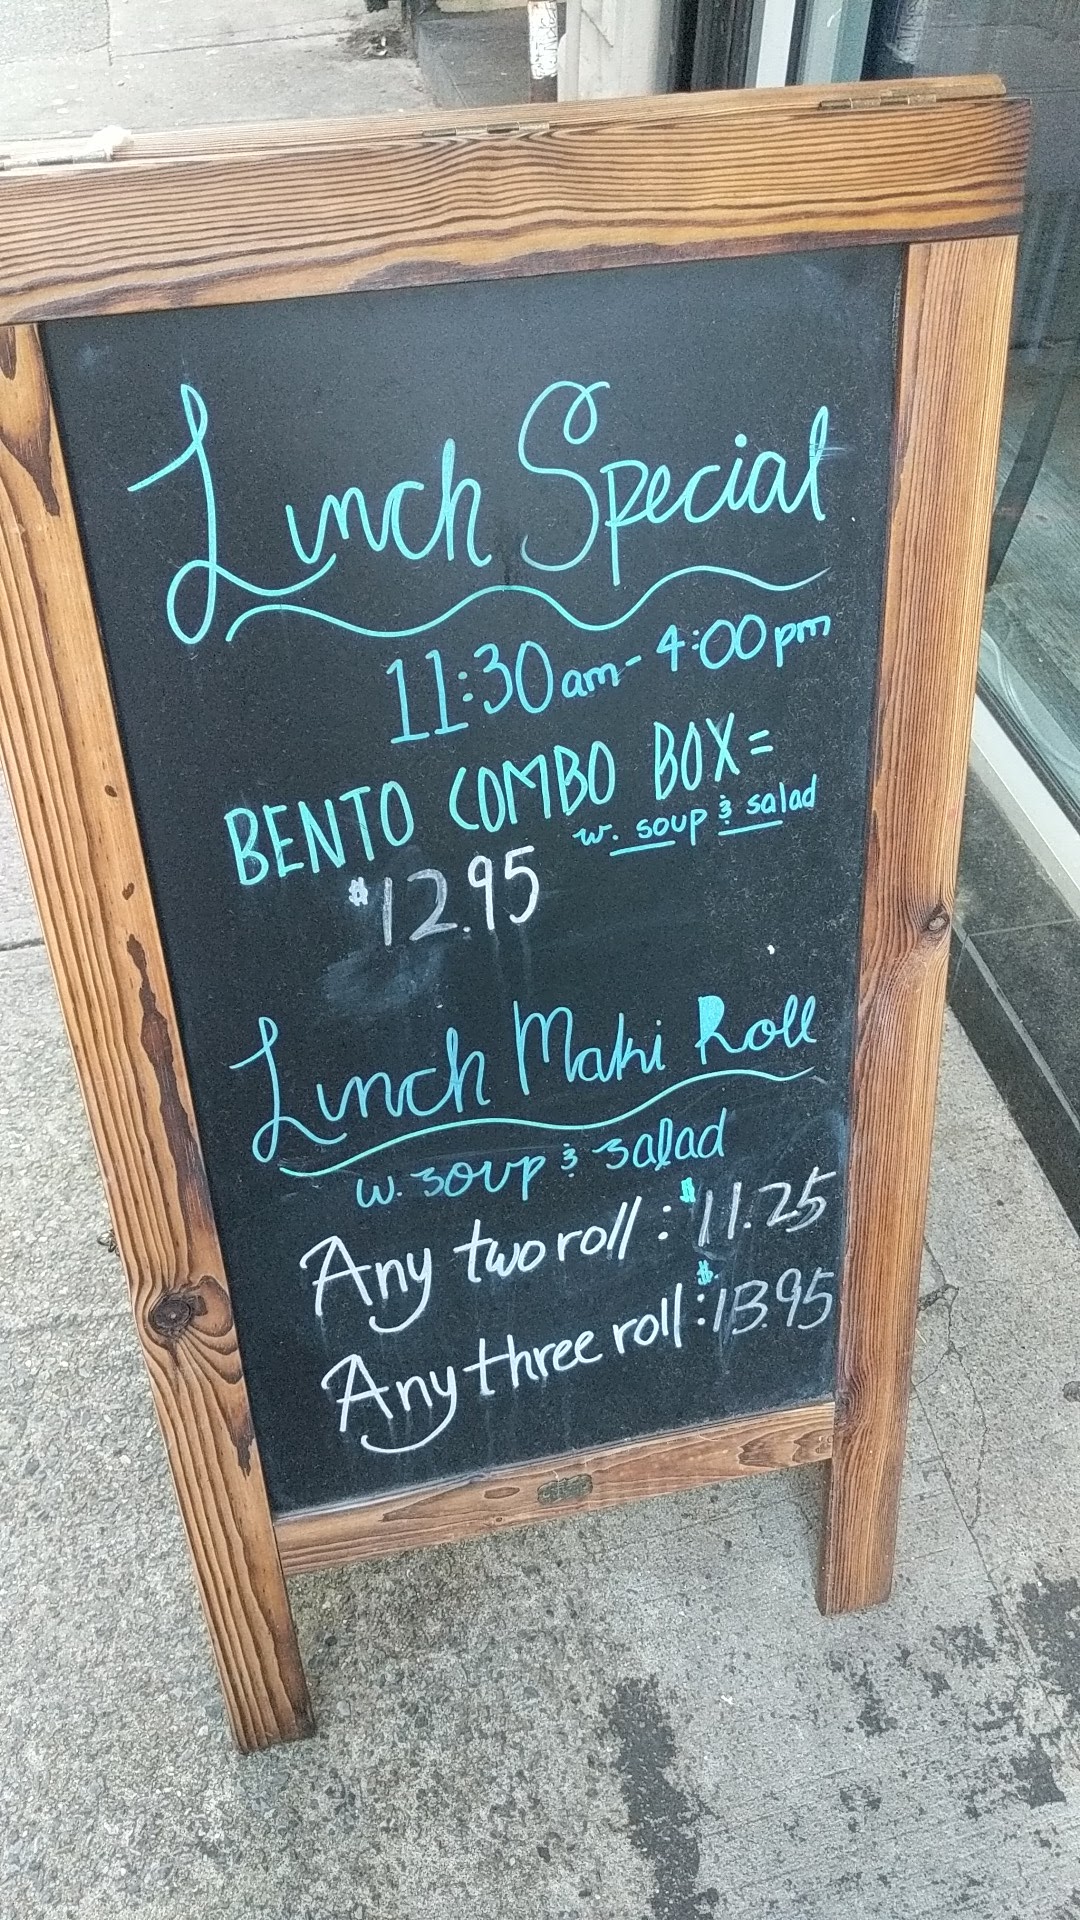 Lunch Special
11:30am - 4:00pm
BENTO COMBO BOX =
w. soup & salad
$12.95
Lunch Maki Roll
w. soup & salad
Any two roll : $11.25
Any three roll : $13.95